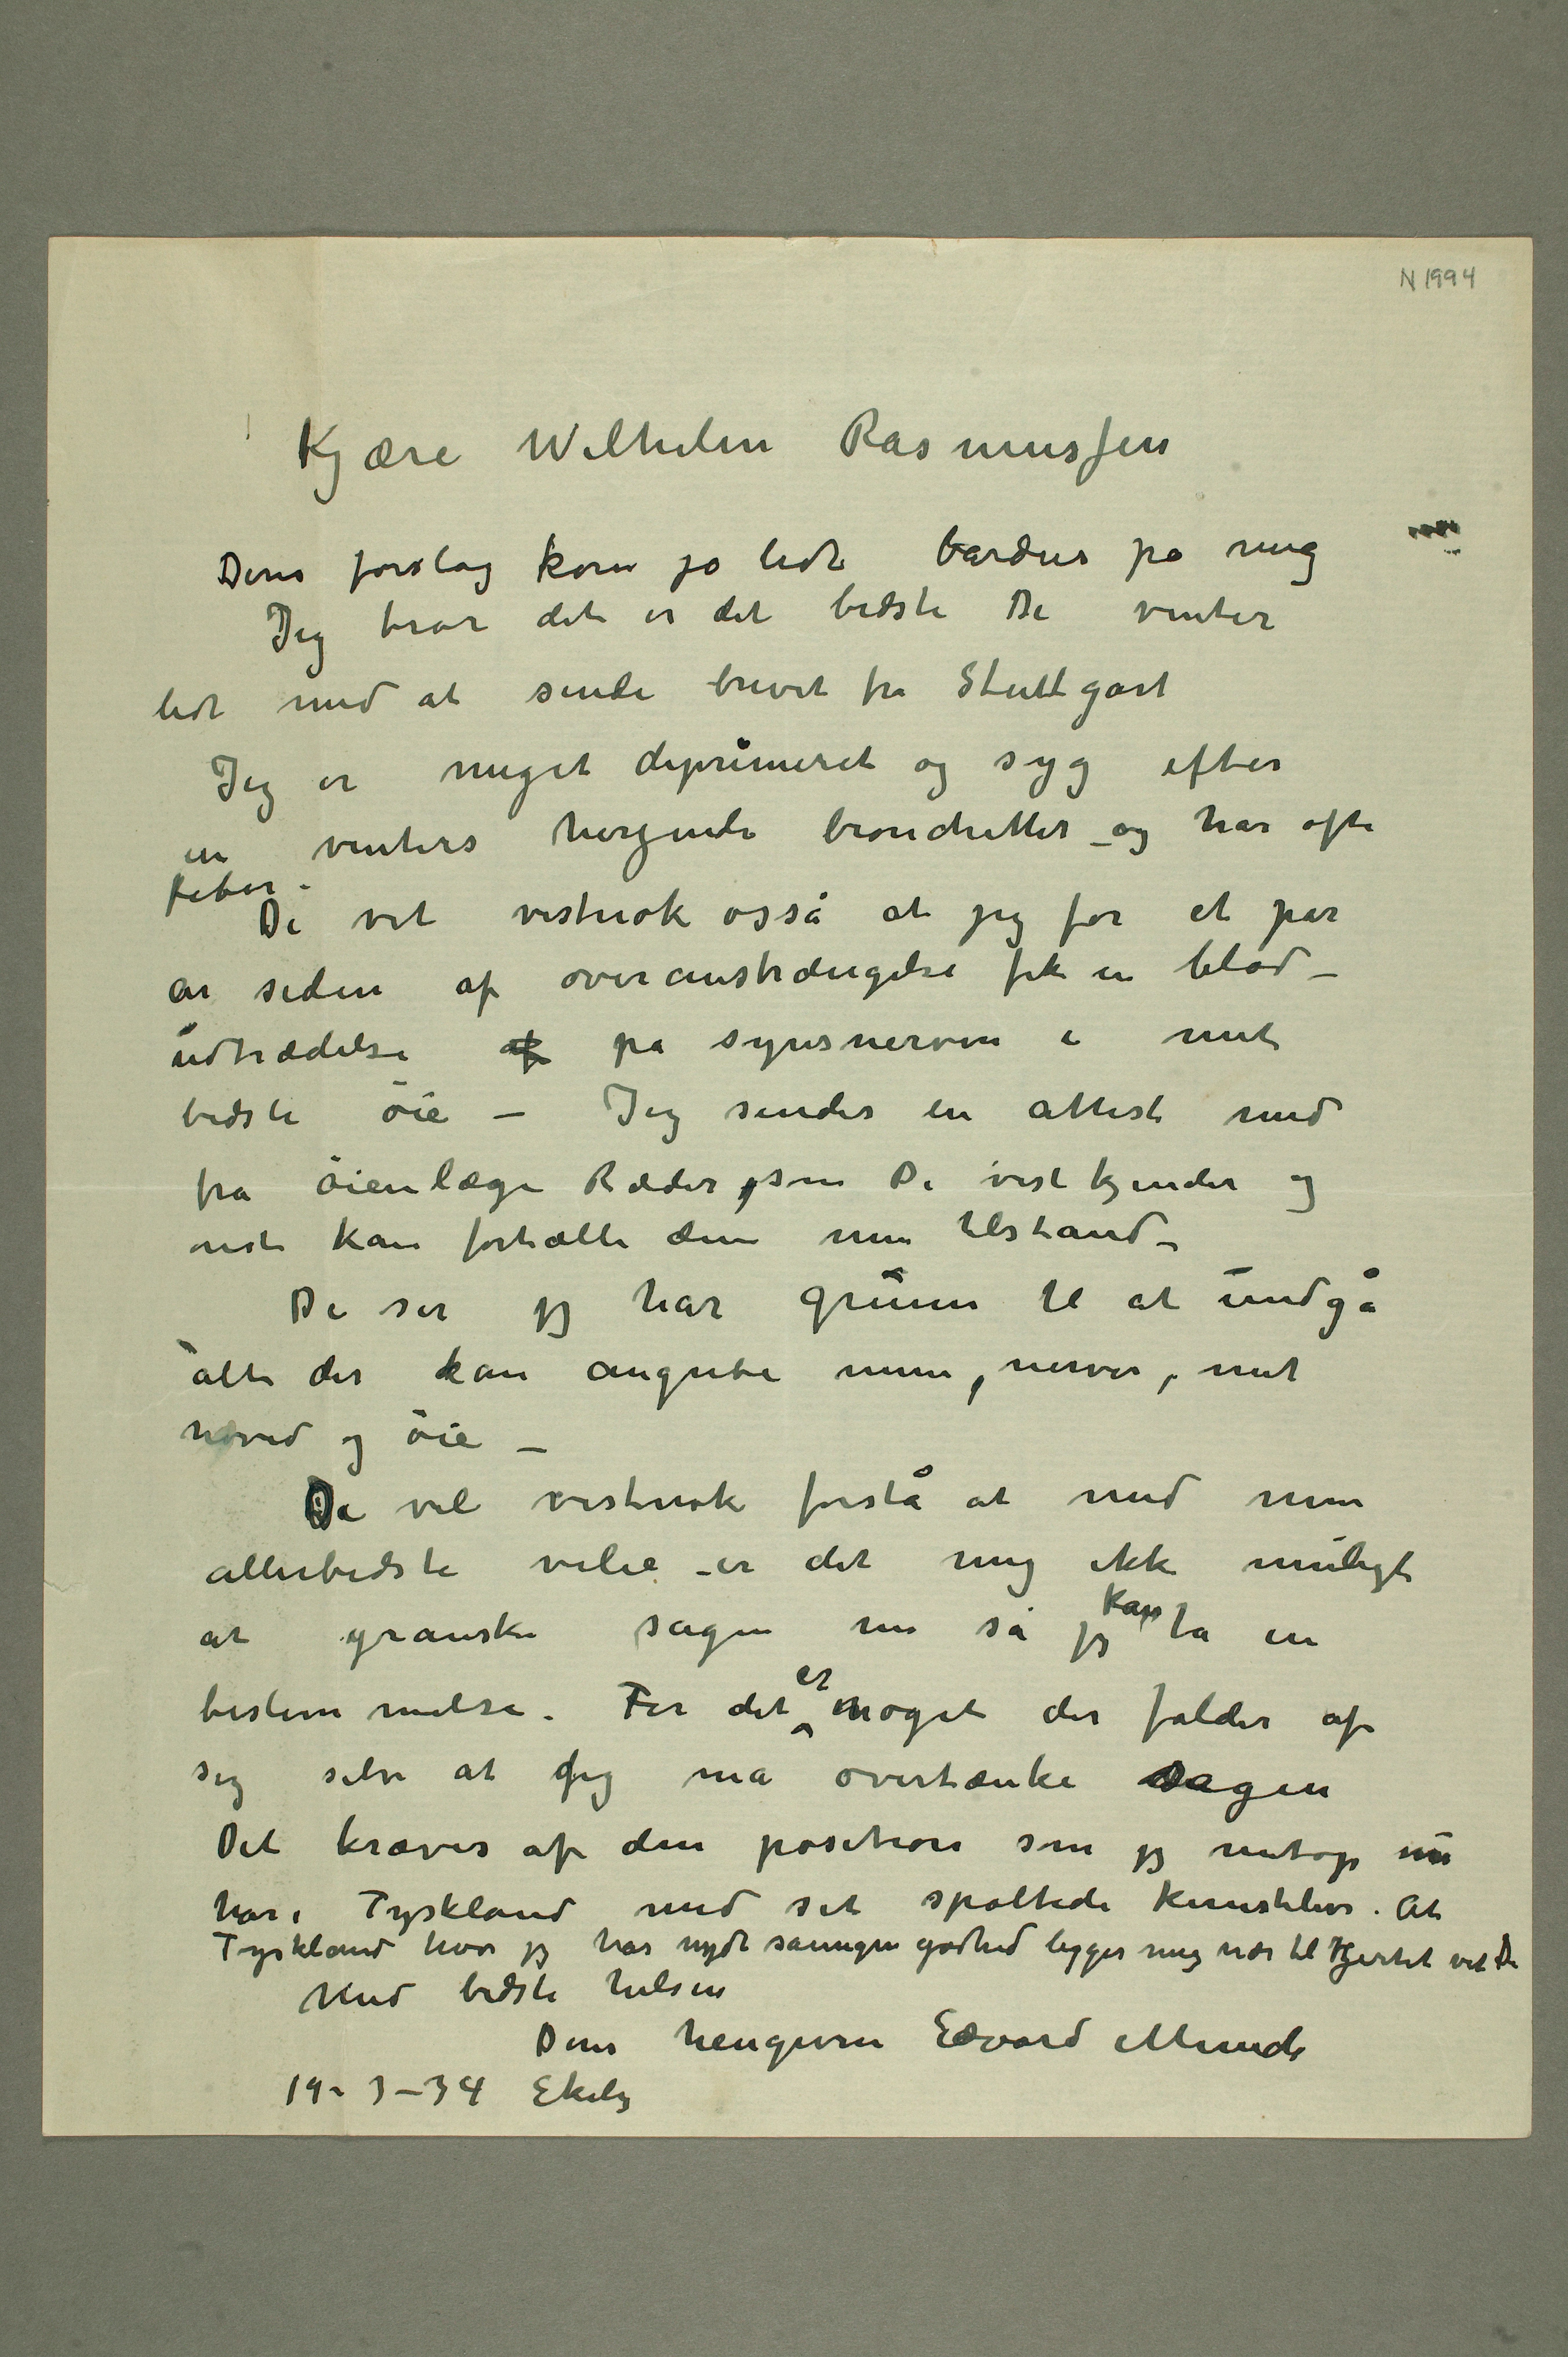 N 1994
Kjære Wilhelm Rasmussen
Deres forslag kom jo lidt bardus på mig
Jeg tror det er det bedste De venter
lidt med at sende brevet fra Stuttgart
Jeg er meget deprimeret og syg efter
en vinters herjende bronchitter – og har ofte
feber –
De vet vistnok også at jeg for et par
år siden af overanstrængelse fik en blod–
udtrædelse af på synsnerven i mit
bedste öie – Jeg sender en attest med
fra öienlæge Ræder, som De vist kjender og
kan fortælle dem min tilstand –
De ser jeg har grunn til at undgå
alt der kan angribe mine, nerver, mit
hoved og öie –
De vil vistnok forstå at med min
allerbedste vilie – er det mig ikke muligt
at granske sagen nu så jeg kan ta en
bestemmelse. For det er noget der falder af
sig selv at jeg må overtænke sagen
Det kræves af den position som jeg netop nu
har i Tyskland med sit spaltede kunstliv. At
Tyskland hvor jeg har nydt såmegen godhed ligger mig nær til Hjertet vet De
Med bedste hilsen
Deres hengivne Edvard Munch
19–3–34 Ekely